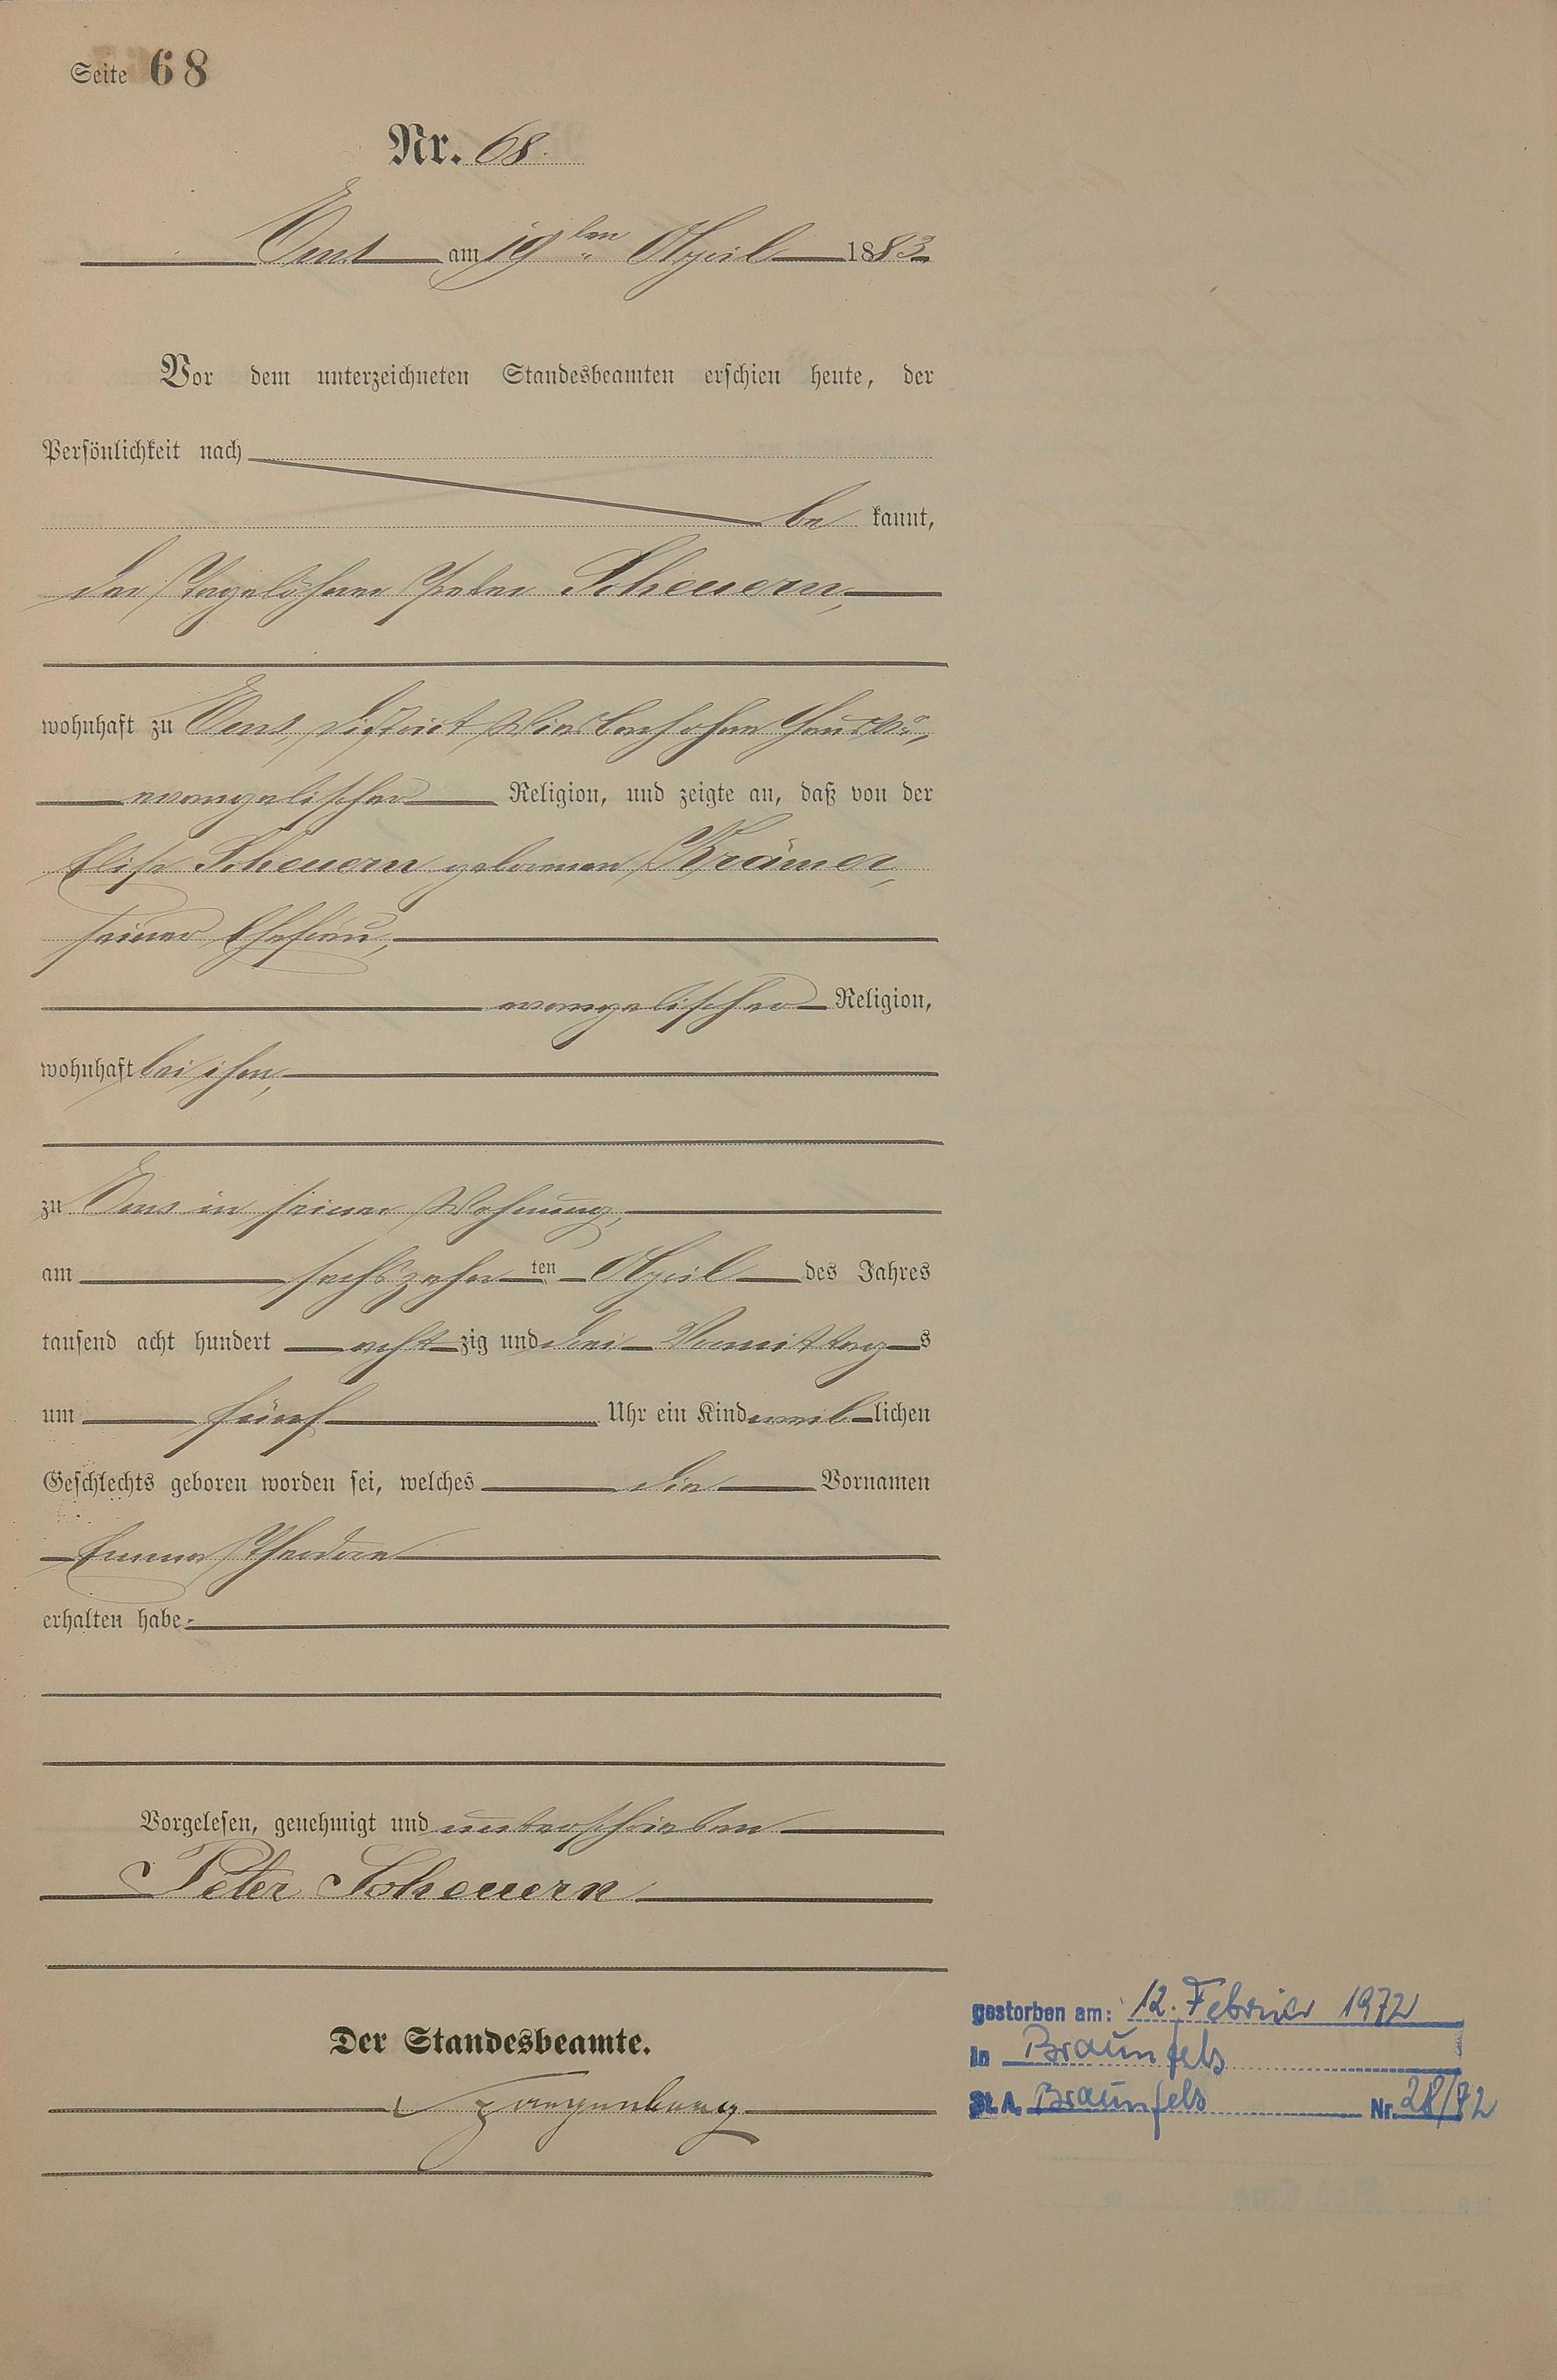 Seite 68
Nr. 68.
Ems am 19ten April 1883
Vor dem unterzeichneten Standesbeamten erschien heute, der
Persönlichkeit nach
be kannt,
der Tagelöhner Peter Scheuern,
wohnhaft zu Ems, District
evangelischer Religion, und zeigte an, daß von der
Elise Scheuern geborenen Krämer,
seiner Ehefrau,
evangelischer Religion,
wohnhaft bei ihm,
zu Ems in seiner Wohnung,
am sechszehnten April des Jahres
tausend acht hundert achtzig und drei Vormittags
um fünf Uhr ein Kind weiblichen
Geschlechts geboren worden sei, welches die Vornamen
Emma
erhalten habe
Vorgelesen, genehmigt und unterschrieben
Peter Scheuern
Der Standesbeamte.
gestorben am: 12. Februar 1972
in Braunfels
St. A. Braunfels Nr. 28/72